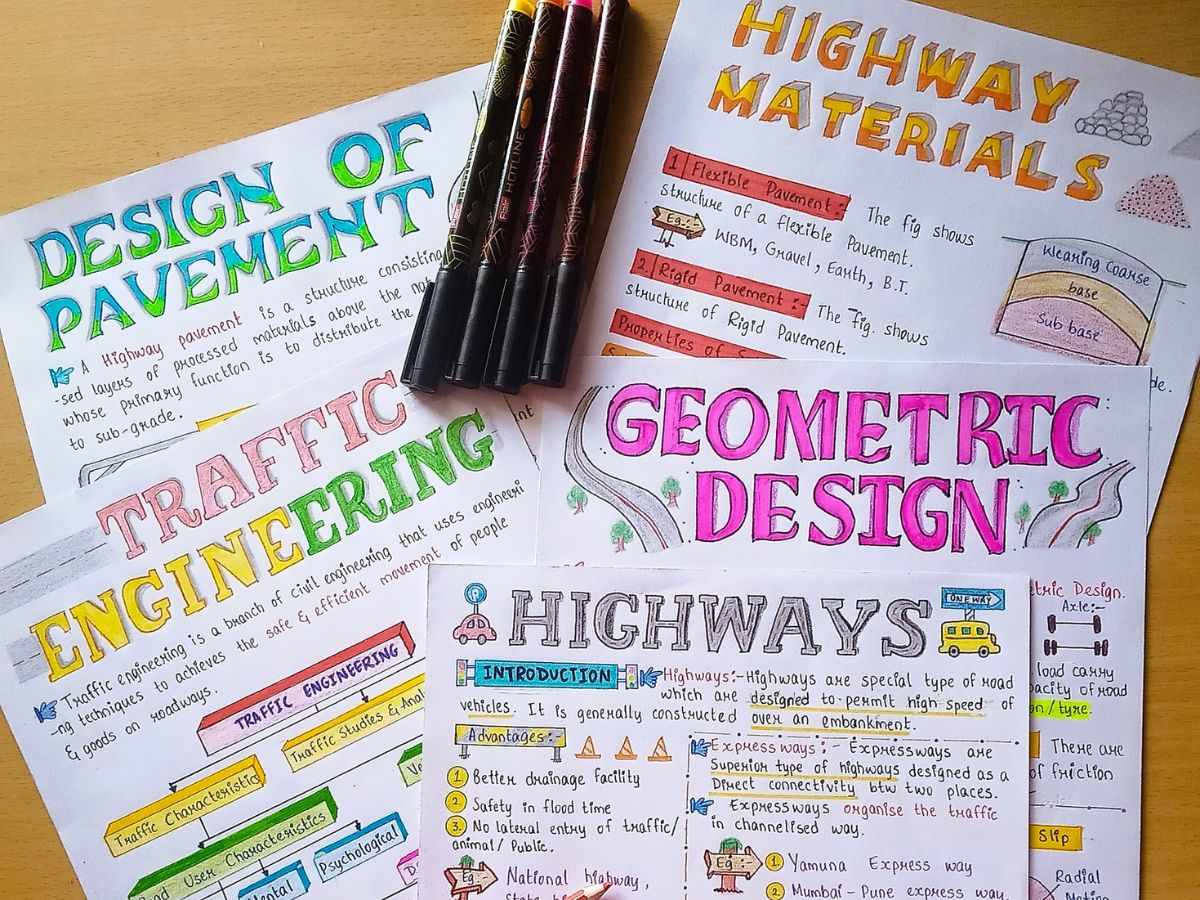 DESIGN OF
PAVEMENT
A Highway pavement is a structure consisting
-sed layers of processed materials above the
whose primary function is to distribute the
to sub-grade.
HOTLINE
Flair
HIGHWAY
MATERIALS
1 Flexible Pavement:- The fig shows
structure of a flexible Pavement.
Eg:- WBM, Gravel, Earth, B.T.
2. Rigid Pavement :- The fig. shows
structure of Rigid Pavement.
Properties of
Wearing Coarse
base
Sub base
TRAFFIC
ENGINEERING
Traffic engineering is a branch of civil engineering that uses engineeri
-ng techniques to achieves the safe & efficient movement of people
& goods on roadways.
TRAFFIC ENGINEERING
Traffic Characteristics
Traffic Studies &
User Characteristics
Psychological
GEOMETRIC
DESIGN
Design.
Axle:-
load carry
of road
/tyre.
There are
of friction
Slip
Radial
HIGHWAYS
ONE WAY
INTRODUCTION
Highways:- Highways are special type of road
which are designed to permit high speed of
vehicles. It is generally constructed over an embankment.
Advantages:-
1. Better drainage facility
2. Safety in flood time
3. No lateral entry of traffic/
animal/ Public.
Eg:- National highway,
Expressways:- Expressways are
Superior type of highways designed as a
Direct connectivity btw two places.
Expressways organise the traffic
in channelised way.
Eg:- 1. Yamuna Express way
2. Mumbai - Pune express way.